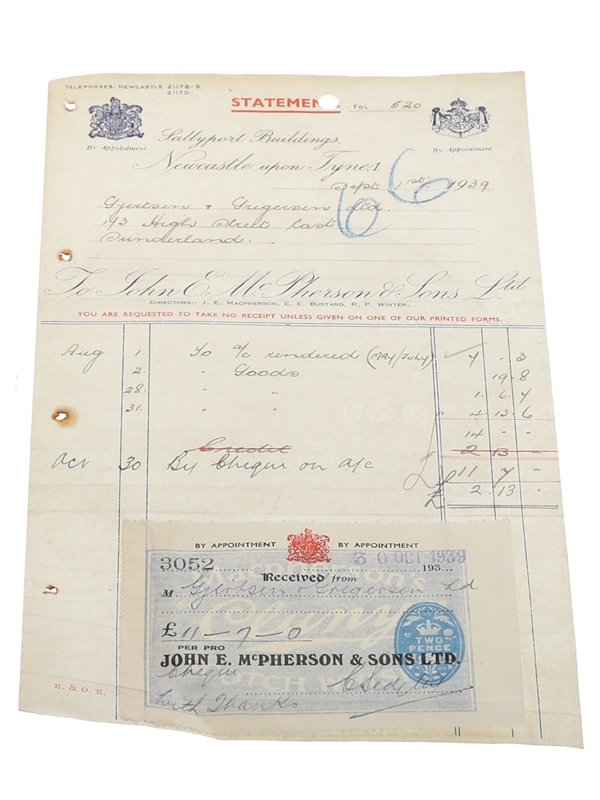 TELEPHONES: NEWCASTLE 21178-9.
21170
STATEMENT Fol. 520
By Appointment By Appointment
Sallyport Buildings,
Newcastle upon Tyne. 1.
66
Sept. 1st. 1939
Gjertsen & Gregersen Ltd.
193 High Street East
Sunderland.
To John E. McPherson & Sons. Ltd
DIRECTORS:- J. E. MACPHERSON, E. E. BUSTARD, R. P. WINTER.
YOU ARE REQUESTED TO TAKE NO RECEIPT UNLESS GIVEN ON ONE OF OUR PRINTED FORMS.
Aug 1. To a/c rendered (MAY/JULY) 7 - 3
2. " Goods 19 - 8
28. " " 1 . 6 . 4
31. " " 4 . 13 . 6
14 - -
Credit 2 13 -
Oct 30 By Cheque on a/c 11 7 -
£ 2 . 13 -
BY APPOINTMENT BY APPOINTMENT
3052 30 OCT 1939
193
Received from
M Gjertsen & Gregersen Ltd
£ 11 - 7 - 0
TWO PENCE
PER PRO
JOHN E. McPHERSON & SONS LTD.
Cheque
SCOTCH WHISKY
With Thanks
E. & O. E.